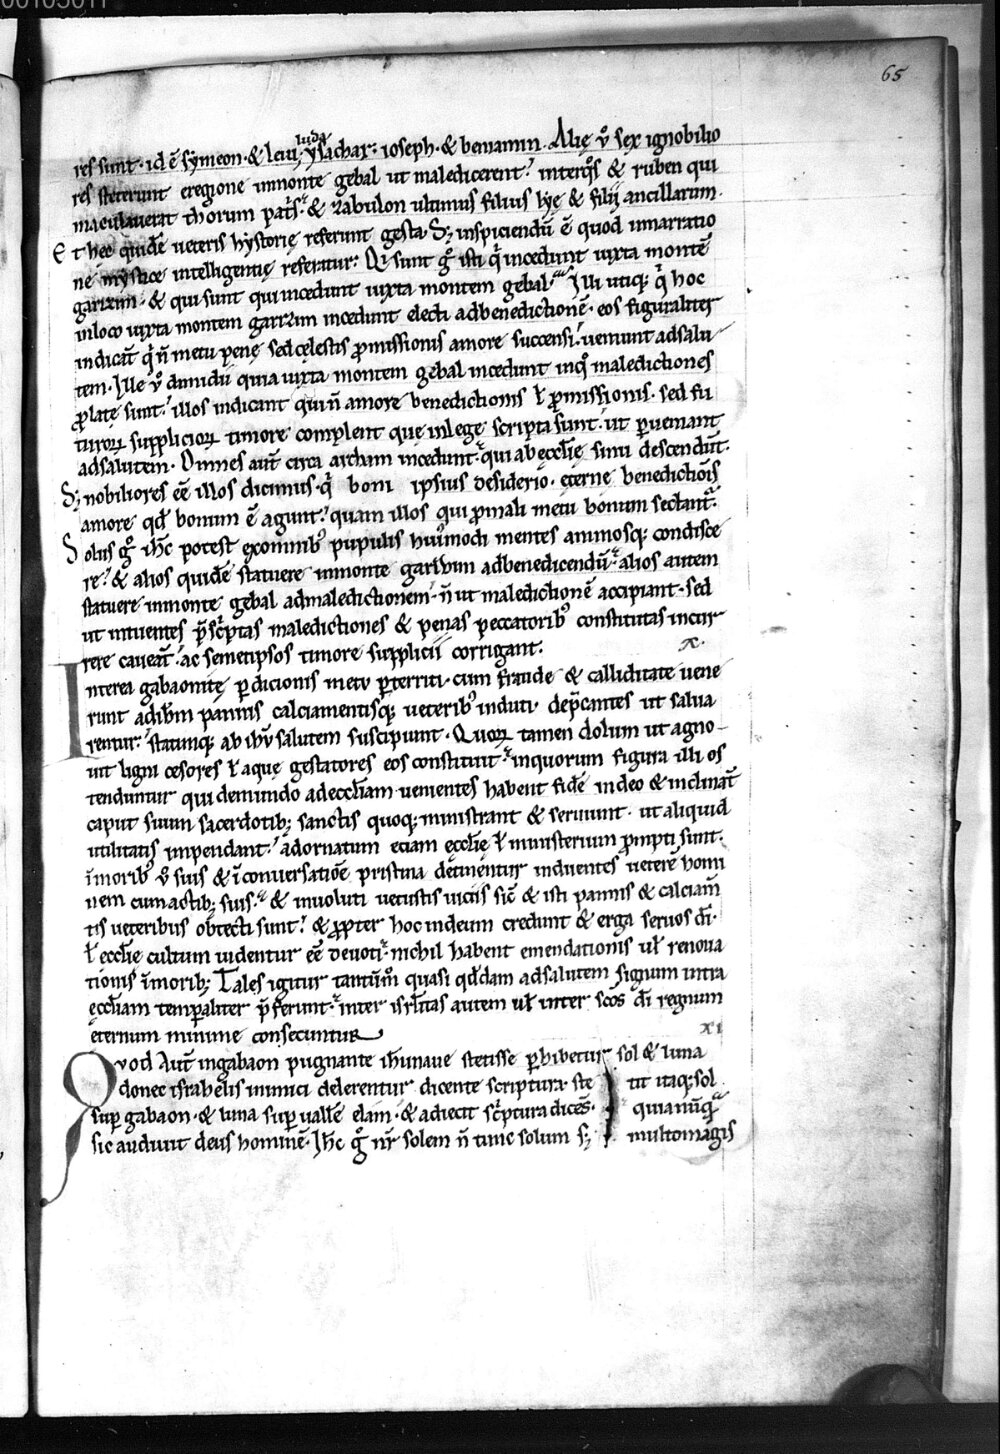 65
iuda
res sunt · id ē symeon · & leui; ysachar: ioseph · & beniamin. Alię ů sex ignobilio
res steterunt eregione inmonte gebal ut maledicerent: interq̊s & ruben qui
maculauerat thorum pat̄s: & zabulon ultimus filius lyę & filij ancillarum.
Et hec quidē ueteris hystorię referunt gesta. S; inspiciendū ē quod innarratio
ne mystice intelligentię referatur: Qi sunt ḡ isti q̄ incedunt iuxta montē
garizim · & qui sunt qui incedunt iuxta montem gebal. Illi utiq; q̄ hoc
inloco iuxta montem garizim incedunt electi adbenedictionē · eos figuraliter
indicāt q̄ n̄ metu penę sed cęlestis ꝓmissionis amore succensi: ueniunt adsalu
tem. Ille ů dimidiū quia iuxta montem gebal incedunt inq̊ maledictiones
ꝓlatę sunt: illos indicant qui n̄ amore benedictionis ł ꝓmissionis · sed fu
turoꝝ supplicioꝝ timore complent que inlege scripta sunt: ut ꝑueniant
adsalutem. Omnes aūt circa archam incedunt: qui ab ęccłię sinu descendūt.
S; nobiliores eē illos dicimus · q̄ boni ipsius desiderio · eterne benedictiōis
amore qd̄ bonum ē agunt: quam illos qui ꝓ mali metu bonum sectant̄.
Solus ḡ ihc̄ potest exomnib; pupulis huꝰmodi mentes animosq; condisce
re: & alios quidē statuere inmonte garizim adbenedicendū: alios autem
statuere inmonte gebal admaledictionem · n̄ ut maledictionē accipiant · sed
ut intuentes p̄sc̄ptas maledictiones & penas peccatorib; constitutas incur
rere caueāt: ac semetipsos timore supplicii corrigant. x.
Interea gabaonitę ꝑdicionis metu ꝑterriti · cum fraude & calliditate uene
runt ad ihm̄ pannis calciamentisq; ueterib; induti · dep̄cantes ut salua
rentur: statimq; ab ihu̅ salutem suscipiunt. Quoꝝ tamen dolum ut agno
uit ligni cesores ł aquę gestatores eos constituit: inquorum figura illi os
tenduntur qui demundo adeccłiam uenientes habent fidē indeo & inclināt
caput suum sacerdotib; sanctis quoq; ministrant & seruiunt · ut aliquid
utilitatis impendant: adornatum etiam ęccłię ł ministerium ꝓmpti sunt:
īmorib; ů suis & īconuersatiōe pristina detinentur induentes ueterē homi
nem cum actib; suis: & inuoluti uetustis uiciis sic̄ & isti pannis & calciam̄
tis ueteribus obtecti sunt: & ꝓpter hoc indeum credunt & erga seruos dī ·
ł ęccłię cultum uidentur eē deuoti: nichil habent emendationis uł renoua
tionis īmorib; Tales igitur tantūm̊ quasi qd̄dam adsalutem signum intra
ęccłiam temꝑaliter p̄ferunt: inter isrłitas autem uł inter sc̄os dī regnum
ęternum minime consecuntur xi
Quod Aūt ingabaon pugnante ih̄unaue stetisse ꝑhibetur sol & luna
donec israhelis inimici delerentur dicente scriptura · ste tit itaq; sol
suꝑ gabaon · & luna suꝑ vallē elam · & adiecit sc̄ptura dicēs · quia nūq̄
sic audiuit deus hominē. Ihc̄ ḡ nr̄ solem n̄ tunc solum s; multo magis